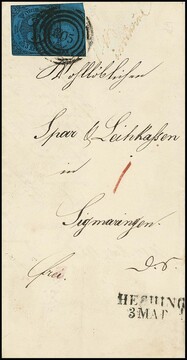 Wohllöblichen
Spar & Leihkassen
in
Sigmaringen.
frei.
d.S.
HECHING
3 MAI